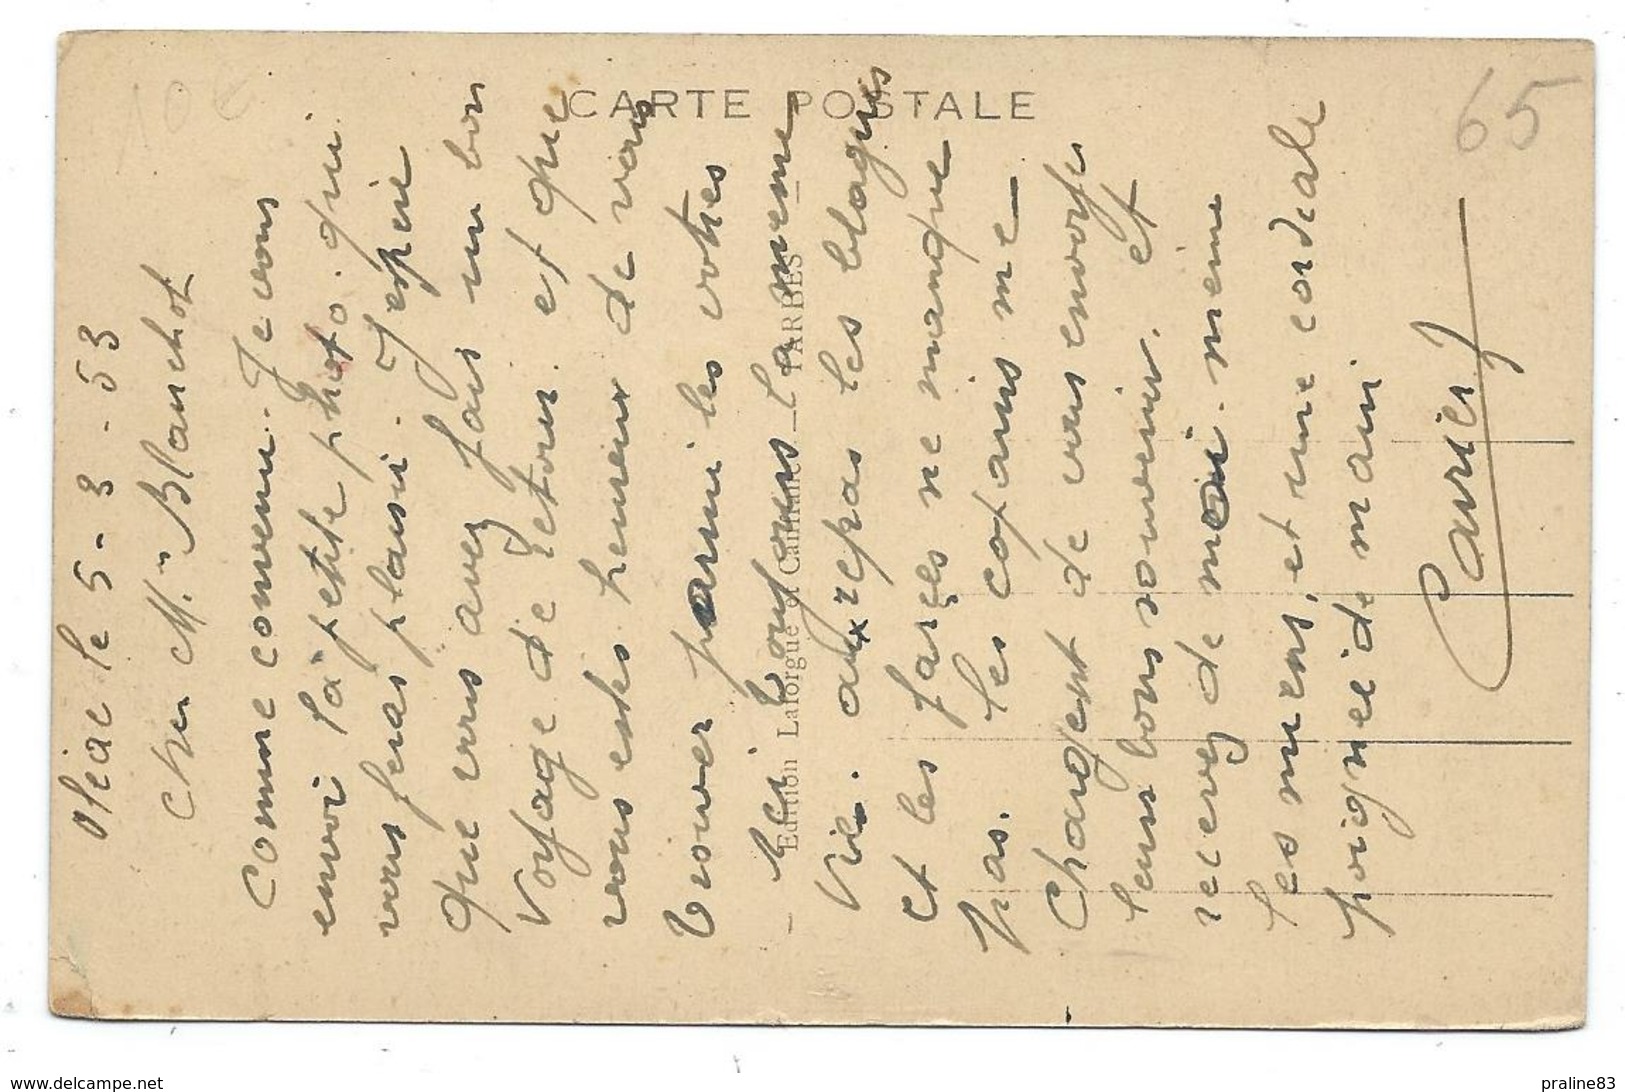 CARTE POSTALE
65
10 €
Oléac le 5-3-53
Cher Mr Blanchot
Comme convenu. Je vous
envoi la petite photo. qui
vous feras plaisir. J'espère
que vous avez fais un bon
voyage de retour. et que
vous estes heureux de vous
trouver parmi les votres
Ici toujours la meme
vie. aux repas les blagues
et les farces ne manque
pas. les copains me
chargent de vous envoyer
leurs bons souvenir. et
recevez de moi. même
les miens, et une cordiale
poignée de main
Edition Laforgue et Camiade — TARBES
www.delcampe.net
praline83